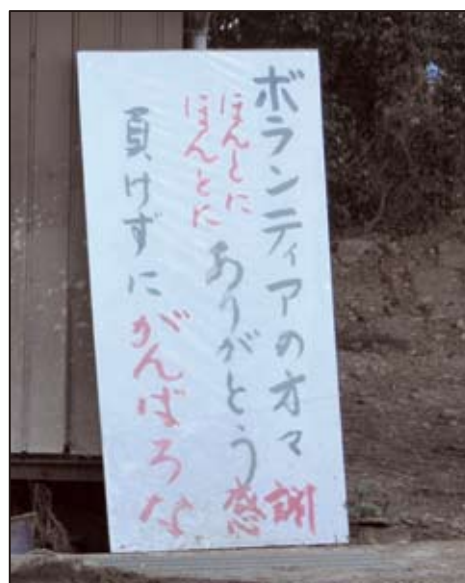 ボランティアの方々
ほんとに
ほんとに
ありがとう
感謝
負けずにがんばろな